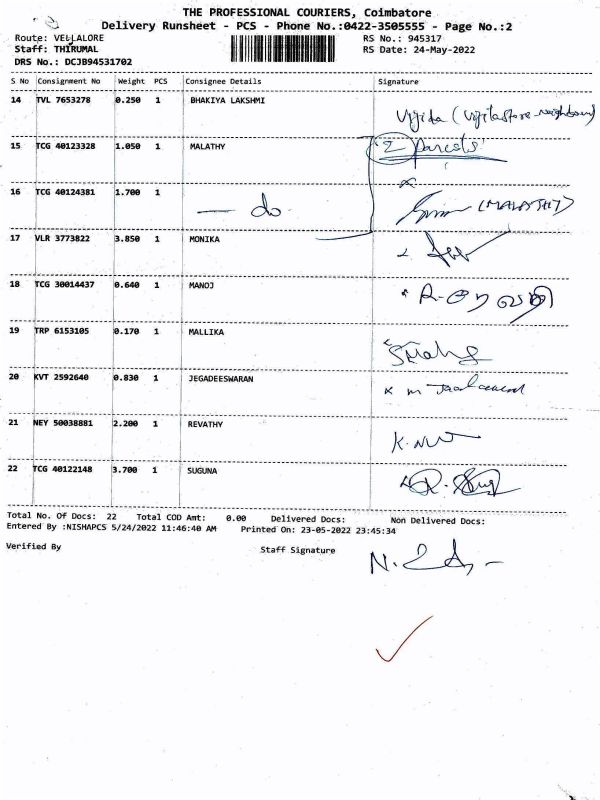 THE PROFESSIONAL COURIERS, Coimbatore
Delivery Runsheet - PCS - Phone No.:0422-3505555 - Page No.:2
Route: VELLALORE RS No.: 945317
Staff: THIRUMAL RS Date: 24-May-2022
DRS No.: DCJB94531702
S No Consignment No Weight PCS Consignee Details Signature
14 TVL 7653278 0.250 1 BHAKIYA LAKSHMI
15 TCG 40123328 1.050 1 MALATHY 2 parcels
16 TCG 40124381 1.700 1 — do (MALATHI)
17 VLR 3773822 3.850 1 MONIKA
18 TCG 30014437 0.640 1 MANOJ
19 TRP 6153105 0.170 1 MALLIKA
20 KVT 2592640 0.830 1 JEGADEESWARAN
21 NEY 50038881 2.200 1 REVATHY
22 TCG 40122148 3.700 1 SUGUNA
Total No. Of Docs: 22 Total COD Amt: 0.00 Delivered Docs: Non Delivered Docs:
Entered By :NISHAPCS 5/24/2022 11:46:40 AM Printed On: 23-05-2022 23:45:34
Verified By Staff Signature